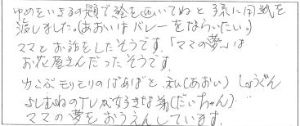 ゆめをいきるの題で絵を画いてねと3某に用紙を
渡しました。(あおいはバレーをならいたい)
ママとお話をしたそうです。「ママの夢」は
お花屋さんだったそうです。
力こぶモリモリのばあばと私(あおい)しょうぐん
よしむねのTレがすきな弟(だいちゃん)
ママの夢をおうえんしています。